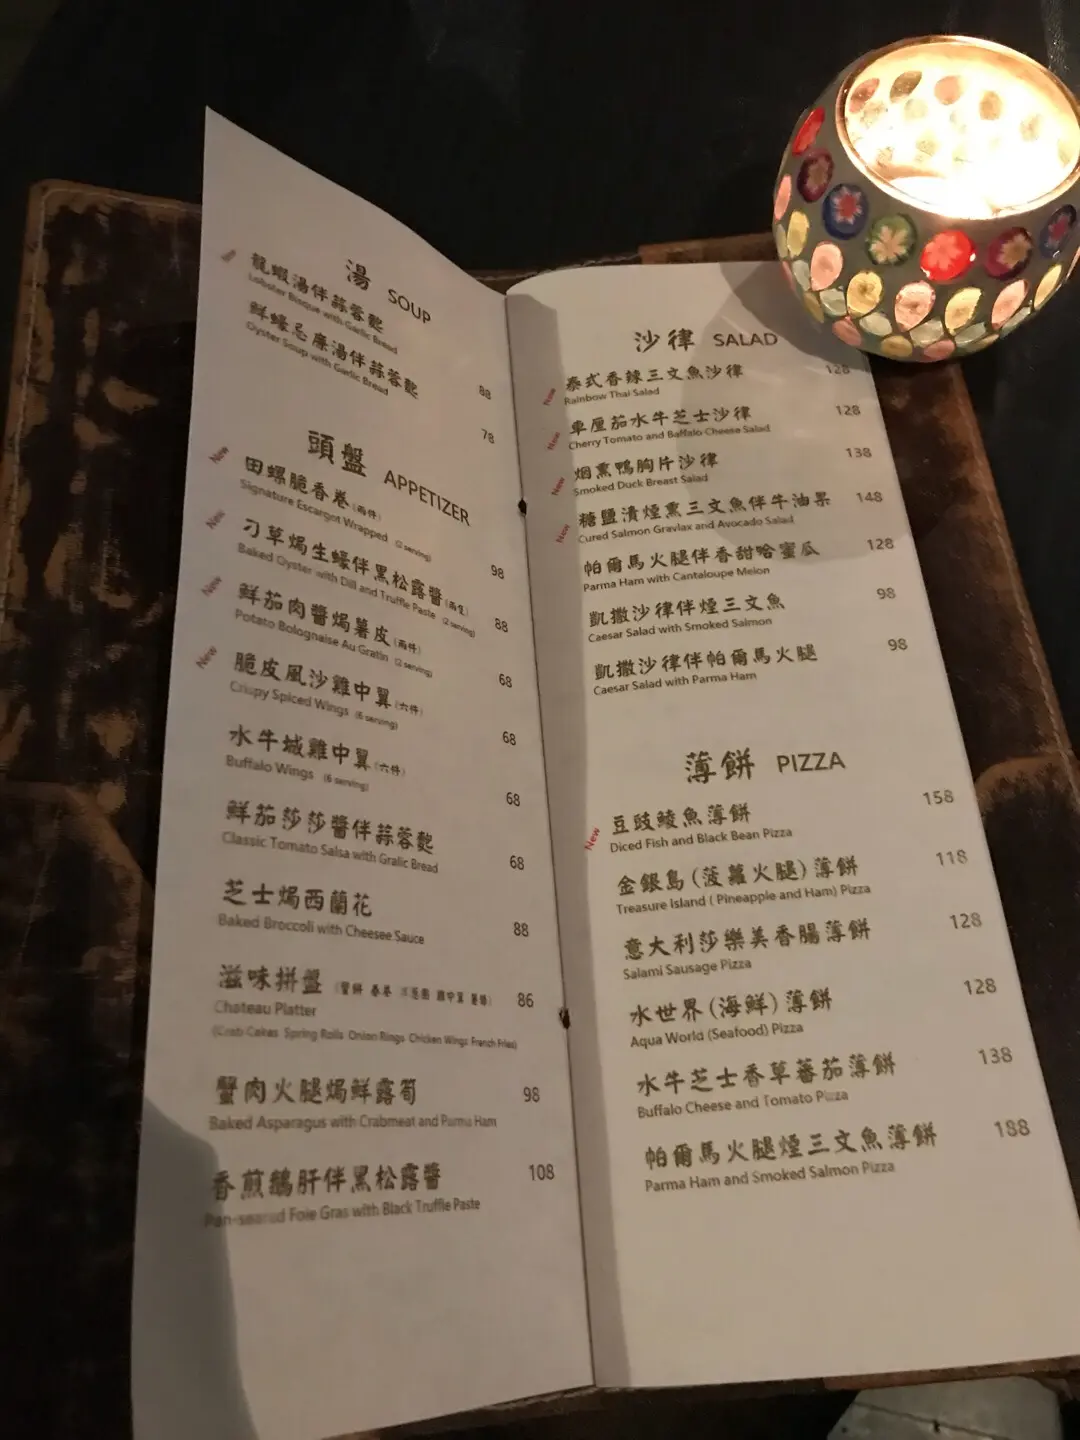 湯 SOUP
New
龍蝦湯伴蒜蓉飽 88
Lobster Bisque with Garlic Bread
鮮蠔忌廉湯伴蒜蓉飽 78
Oyster Soup with Garlic Bread
頭盤 APPETIZER
New
田螺脆香卷 (兩件) 98
Signature Escargot Wrapped (2 serving)
New
刁草焗生蠔伴黑松露醬 (兩隻) 88
Baked Oyster with Dill and Truffle Paste (2 serving)
New
鮮茄肉醬焗薯皮 (兩件) 68
Potato Bolognaise Au Gratin (2 serving)
New
脆皮風沙雞中翼 (六件) 68
Crispy Spiced Wings (6 serving)
水牛城雞中翼 (六件) 68
Buffalo Wings (6 serving)
鮮茄莎莎醬伴蒜蓉飽 68
Classic Tomato Salsa with Gralic Bread
芝士焗西蘭花 88
Baked Broccoli with Cheesee Sauce
滋味拼盤 (蟹餅 春卷 洋葱圈 雞中翼 薯條) 86
Chateau Platter
(Crab Cakes Spring Rolls Onion Rings Chicken Wings French Fries)
蟹肉火腿焗鮮露荀 98
Baked Asparagus with Crabmeat and Parma Ham
香煎鵝肝伴黑松露醬 108
Pan-seared Foie Gras with Black Truffle Paste
沙律 SALAD
New
泰式香辣三文魚沙律 128
Rainbow Thai Salad
New
車厘茄水牛芝士沙律 128
Cherry Tomato and Baffalo Cheese Salad
New
烟熏鴨胸片沙律 138
Smoked Duck Breast Salad
New
糖鹽漬煙熏三文魚伴牛油果 148
Cured Salmon Gravlax and Avocado Salad
帕爾馬火腿伴香甜哈蜜瓜 128
Parma Ham with Cantaloupe Melon
凱撒沙律伴煙三文魚 98
Caesar Salad with Smoked Salmon
凱撒沙律伴帕爾馬火腿 98
Caesar Salad with Parma Ham
薄餅 PIZZA
New
豆豉鯪魚薄餅 158
Diced Fish and Black Bean Pizza
金銀島 (菠蘿火腿) 薄餅 118
Treasure Island ( Pineapple and Ham) Pizza
意大利莎樂美香腸薄餅 128
Salami Sausage Pizza
水世界 (海鮮) 薄餅 128
Aqua World (Seafood) Pizza
水牛芝士香草蕃茄薄餅 138
Buffalo Cheese and Tomato Pizza
帕爾馬火腿煙三文魚薄餅 188
Parma Ham and Smoked Salmon Pizza